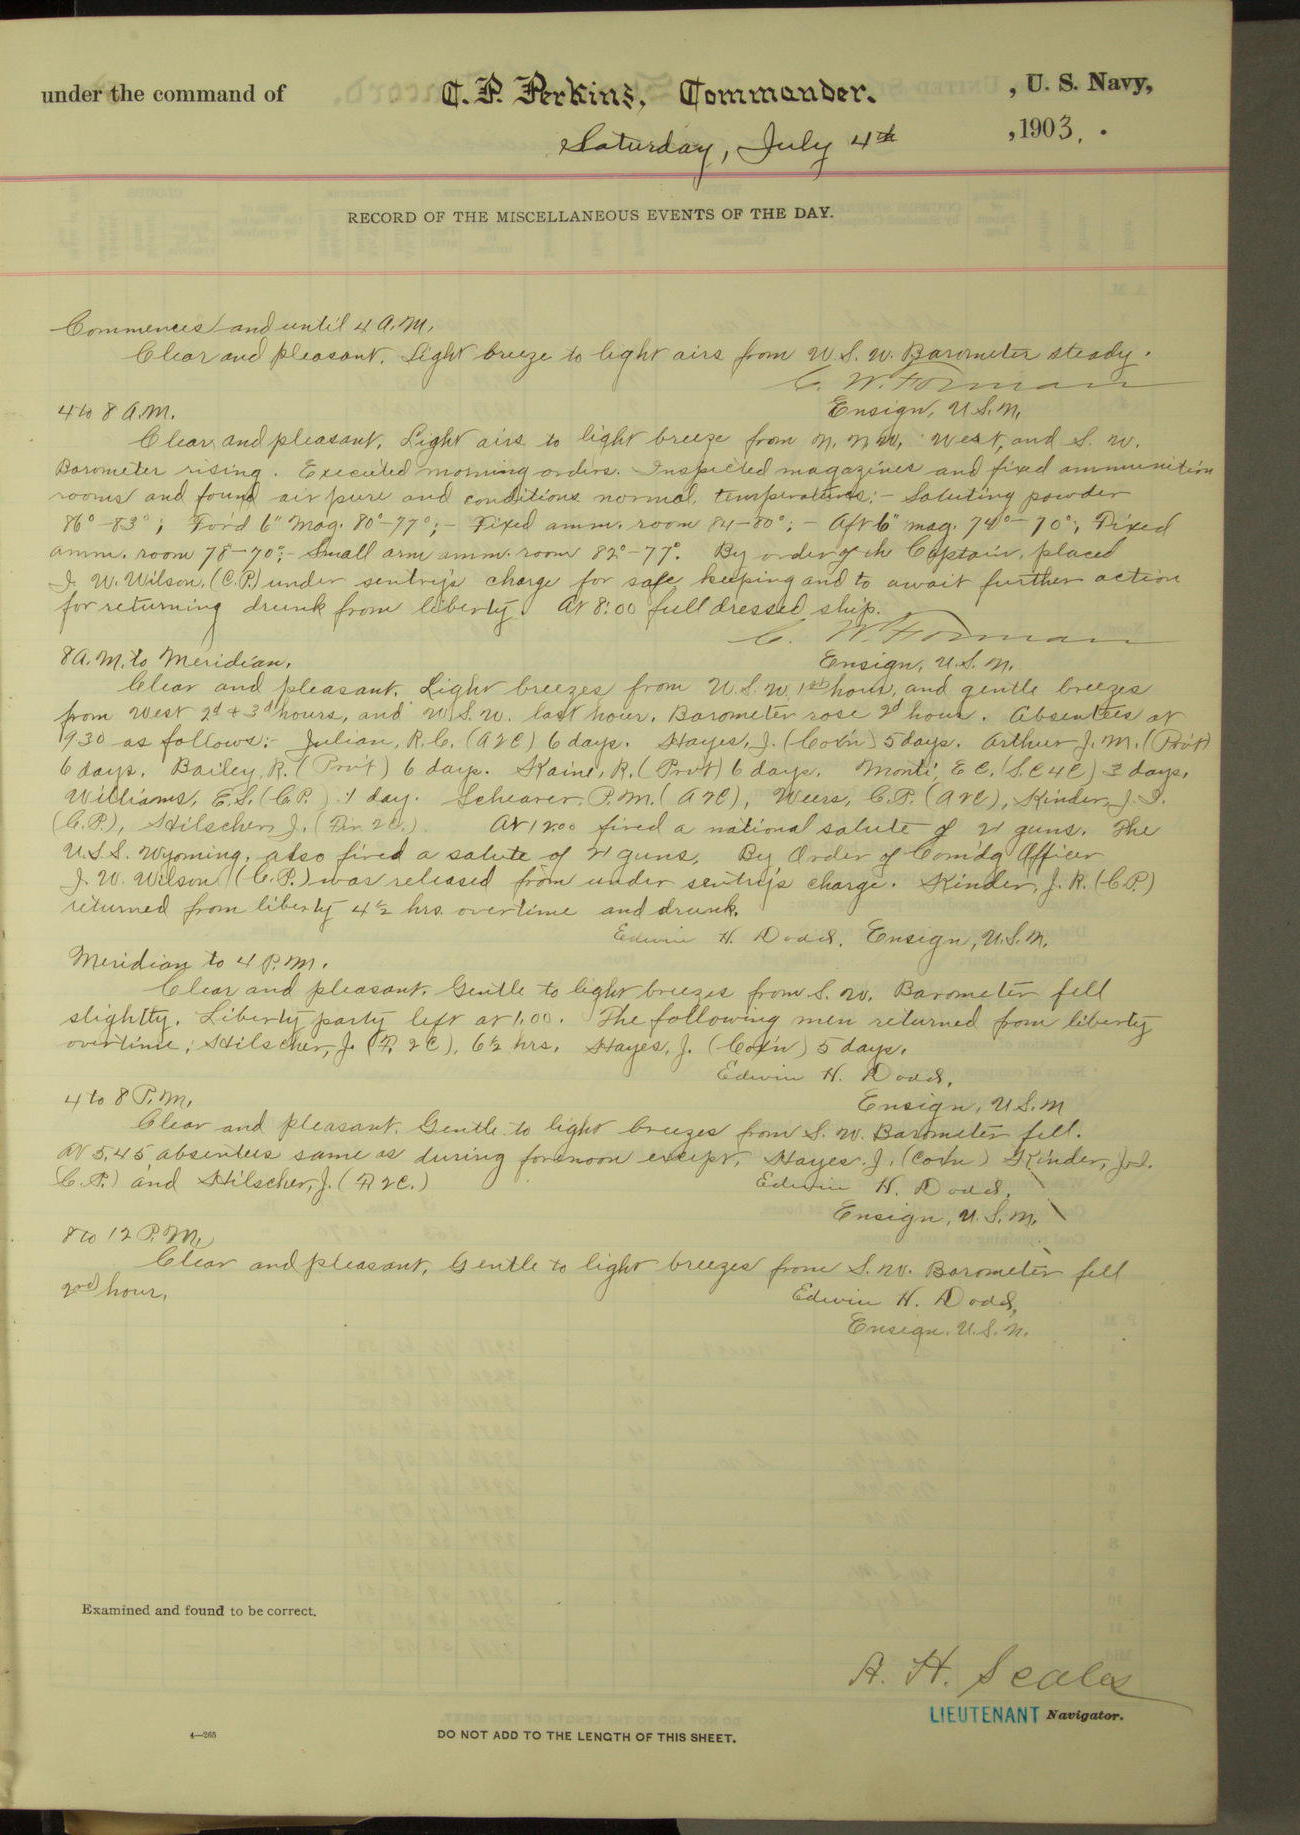 under the command of C. P. Perkins, Commander. , U. S. Navy,
Saturday, July 4th ,1903.
RECORD OF THE MISCELLANEOUS EVENTS OF THE DAY.
Commences and until 4 A.M.
Clear and pleasant. Light breeze to light airs from W.S.W. Barometer steady.
C. W. Forman
4 to 8 A.M. Ensign, U.S.N.
Clear and pleasant. Light airs to light breeze from N.N.W., West, and S.W.
Barometer rising. Executed morning orders. Inspected magazines and fixed ammunition
rooms and found air pure and conditions normal, temperatures:- Saluting powder
86°-83°; For'd 6" Mag. 80°-77°;- Fixed amm. room 84-80°;- Aft 6" mag. 74°-70°; Fixed
amm. room 78-70°;- Small arm amm. room 82°-77°. By order of the Captain, placed
J. W. Wilson, (C.P.) under sentry's charge for safe keeping and to await further action
for returning drunk from liberty. At 8:00 full dressed ship.
C. W. Forman
8 A.M. to Meridian. Ensign, U.S.N.
Clear and pleasant. Light breezes from W.S.W. 1st hour, and gentle breezes
from West 2d & 3d hours, and W.S.W. last hour. Barometer rose 2d hour. Absentees at
9 30 as follows:- Julian, R.C. (A2C) 6 days. Hayes, J. (Cox'n) 5 days. Arthur J. M. (Priv't)
6 days. Bailey, R. (Priv't) 6 days. Kaine, R. (Privt) 6 days. Monti, E C. (S.C4C) 3 days.
Williams, E.S. (C.P.) 1 day. Schearer, P.M. (A2C), Weers, C.P. (A2C), Kinder, J.
(C.P.), Hilscher, J. (Fir. 2C.) At 12:00 fired a national salute of 21 guns. The
U.S.S. Wyoming, also fired a salute of 21 guns. By Order of Com'dg Officer
J. W. Wilson (C.P.) was released from under sentry's charge. Kinder, J. R. (C.P.)
returned from liberty 4 1/2 hrs. overtime and drunk.
Edwin H. Dodd, Ensign, U.S.N.
Meridian to 4 P.M.
Clear and pleasant. Gentle to light breezes from S.W. Barometer fell
slightly. Liberty party left at 1.00. The following men returned from liberty
overtime; Hilscher, J. (F. 2C), 6 1/2 hrs. Hayes, J. (Cox'n) 5 days.
Edwin H. Dodd,
4 to 8 P.M. Ensign, U.S.N
Clear and pleasant. Gentle to light breezes from S.W. Barometer fell.
At 5.45 absentees same as during forenoon except, Hayes, J. (Coxn) Kinder, J.
(C.P.) and Hilscher, J. (F. 2C.) Edwin H. Dodd,
Ensign, U.S.N.
8 to 12 P.M.
Clear and pleasant, Gentle to light breezes from S.W. Barometer fell
2nd hour. Edwin H. Dodd,
Ensign. U.S.N.
Examined and found to be correct.
A. H. Scales
LIEUTENANT Navigator.
4—265 DO NOT ADD TO THE LENGTH OF THIS SHEET.